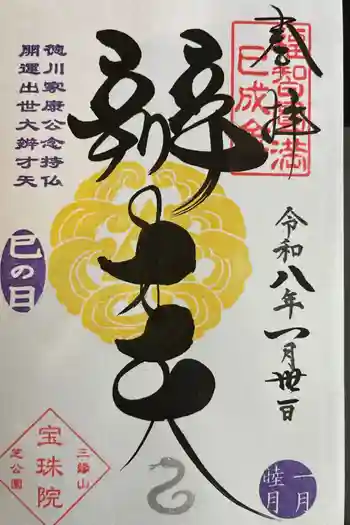 奉拝
令和八年一月卅一日
辨才天
徳川家康公念持仏
開運出世大辨才天
巳の日
三縁山
宝珠院
芝公園
一月
睦月